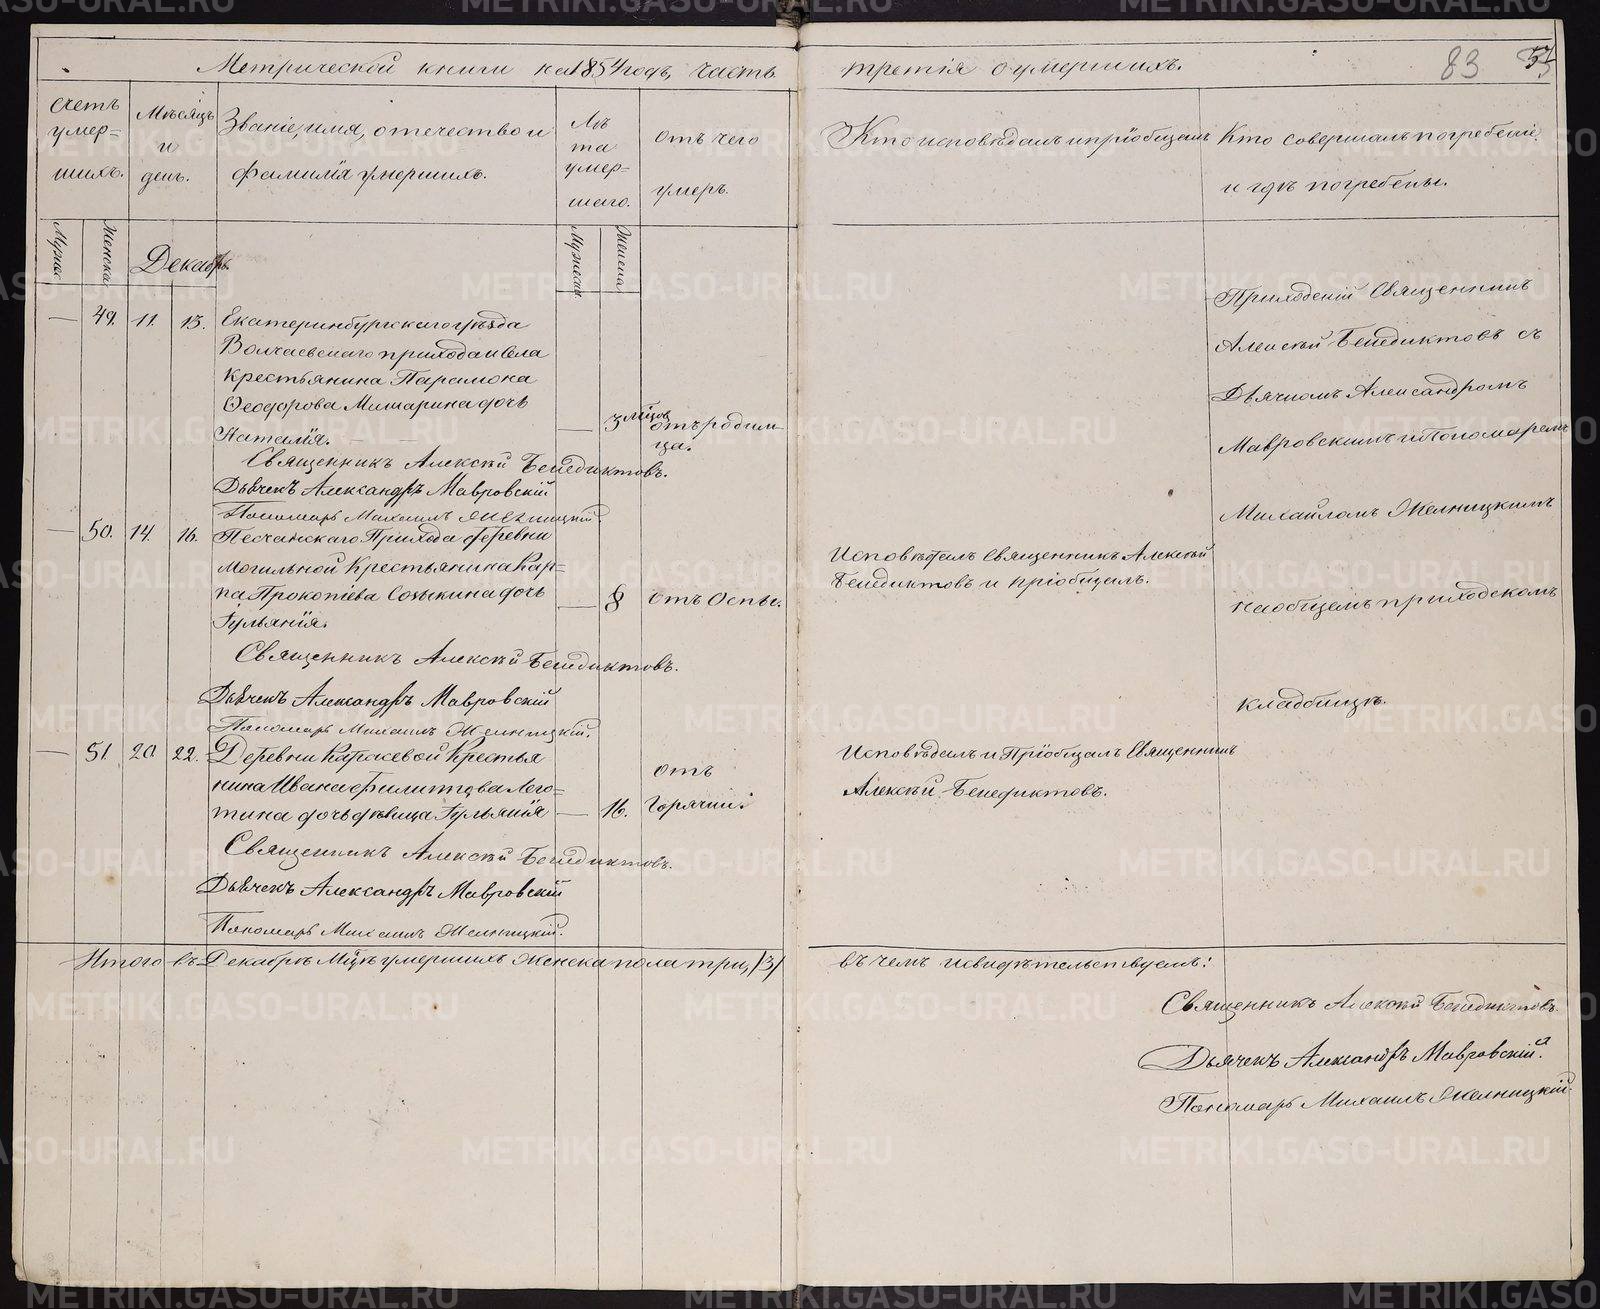 Метрической книги на 1854 годъ, часть третія о умершихъ.
83
Счетъ умер=шихъ.
Мѣсяцъ и день.
Званіе, имя, отечество и фамилія умершихъ.
Лѣта умер=шаго.
отъ чего умеръ.
Кто исповѣдалъ и пріобщалъ
Кто совершалъ погребеніе и гдѣ погребены.
Женска
Декабрь.
— 49. 11. 13. Екатеринбургскаго уѣзда
прихода и села
Крестьянина Парамона
Ѳеодорова Мишарина дочь
Наталія. — — 3 мѣсцов отъ родим=
ца.
Священникъ Алексѣй Бенедиктовъ.
Дьячекъ Александръ Мавровскій
Пономарь Михаилъ
— 50. 14. 16. Песчанскаго Прихода деревни
Могильной Крестьянина Кар=
па Прокопіева дочь — 8 отъ Оспы.
Іульянія.
Священникъ Алексѣй Бенедиктовъ.
Дьячекъ Александръ Мавровскій
Пономарь Михаилъ
— 51. 20. 22. Деревни Крестья
нина Ивана Филиппова Лего=
тина дочь дѣвица Іульянія — 16. отъ
Горячки.
Священникъ Алексѣй Бенедиктовъ.
Дьячекъ Александръ Мавровскій
Пономарь Михаилъ
Исповѣдалъ Священникъ Алексѣй
Бенедиктовъ и пріобщилъ.
Исповѣдалъ и Пріобщалъ Священникъ
Алексѣй Бенедиктовъ.
Приходскій Священникъ
Алексѣй Бенедиктовъ съ
Дьячкомъ Александромъ
Мавровскимъ и Пономаремъ
Михаиломъ
на общемъ приходскомъ
кладбищѣ.
Итого въ Декабрѣ мцѣ умершихъ женска пола три, /3/ въ чемъ и свидѣтельствуемъ:
Священникъ Алексѣй Бенедиктовъ.
Дьячекъ Александръ Мавровскій.
Пономарь Михаилъ
METRIKI.GASO-URAL.RU